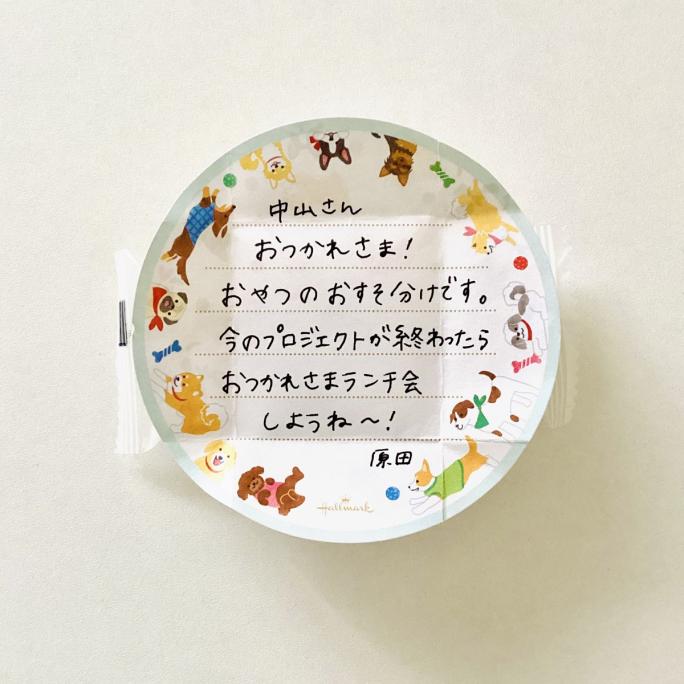 中山さん
おつかれさま!
おやつのおすそ分けです。
今のプロジェクトが終わったら
おつかれさまランチ会
しようね〜!
原田
Hallmark